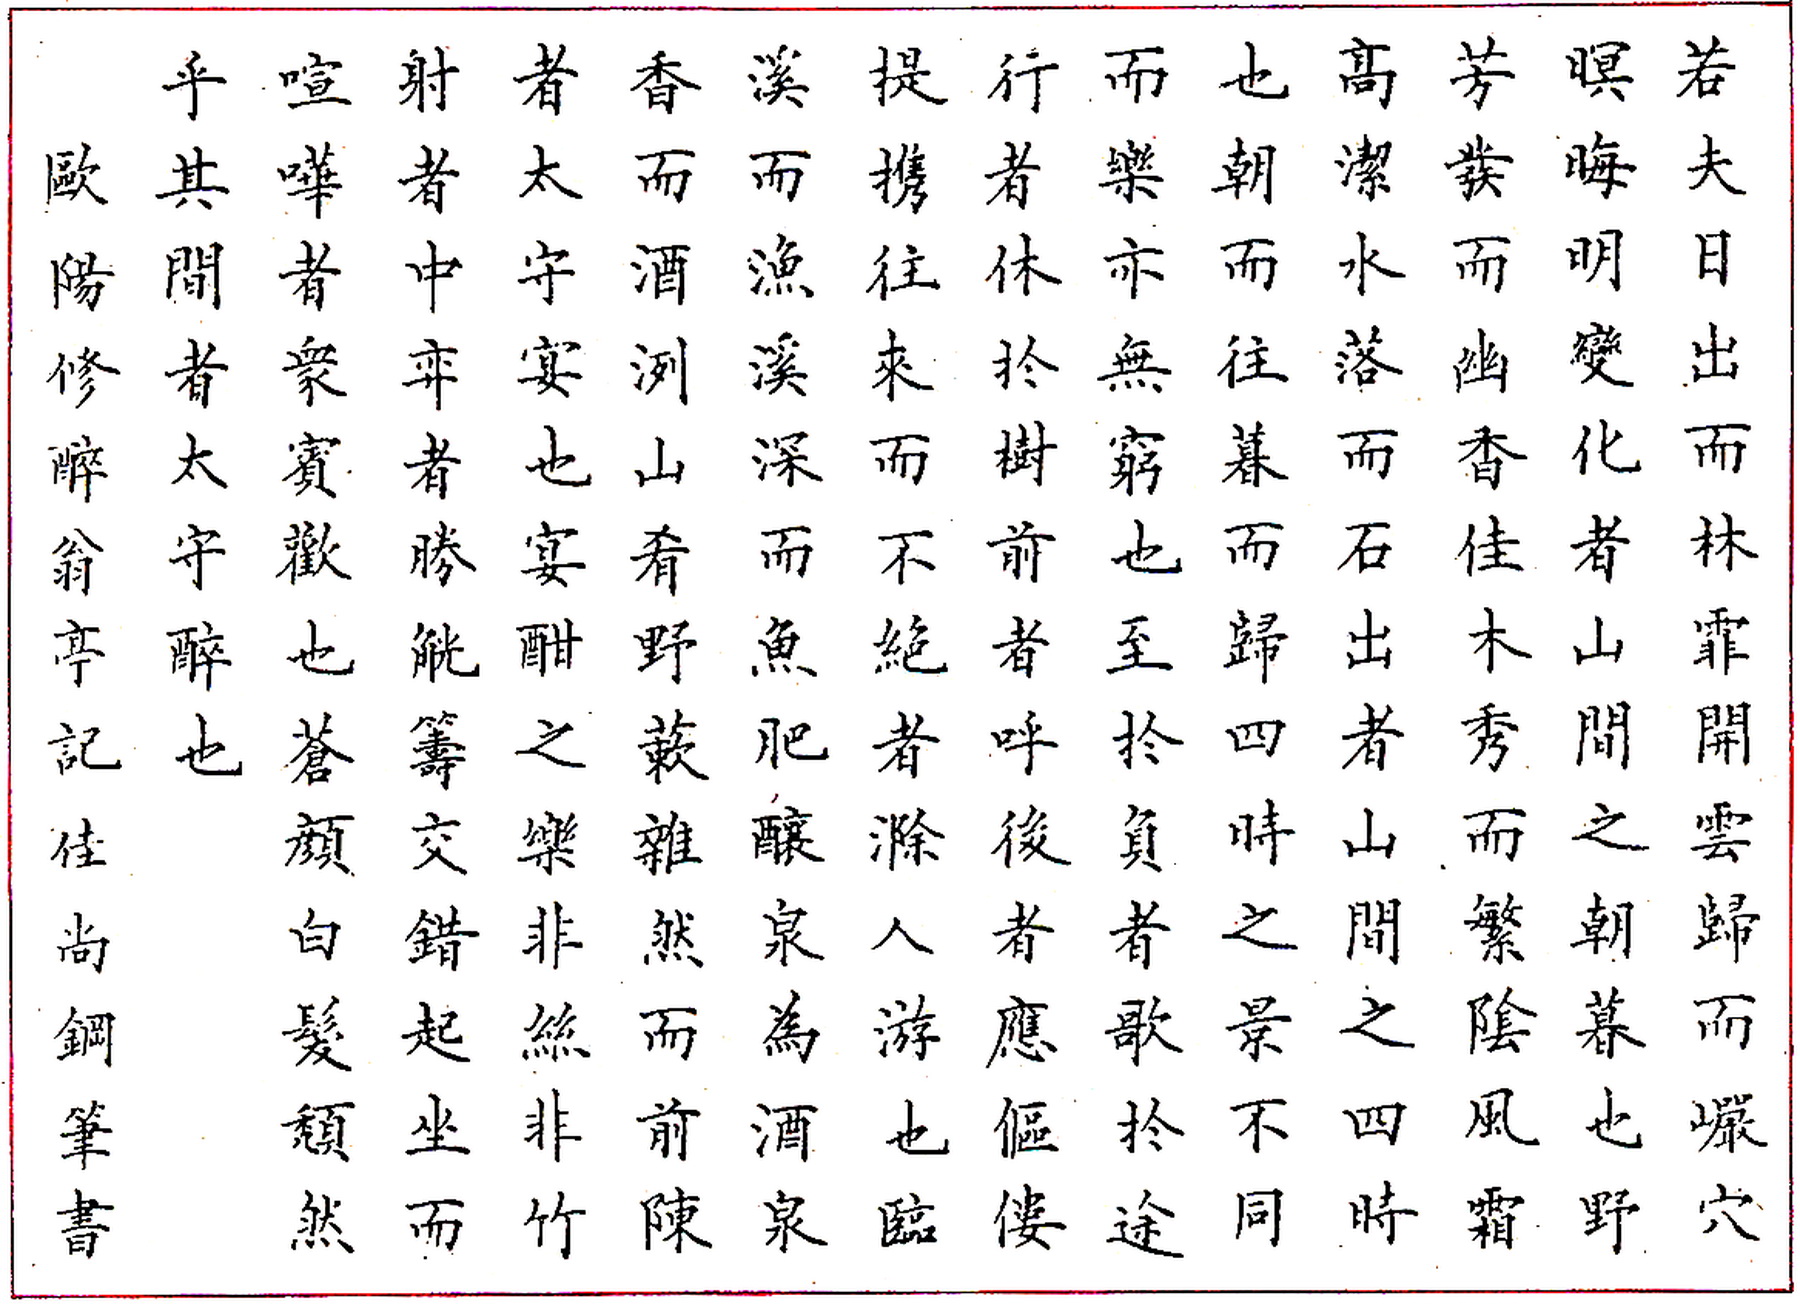 若夫日出而林霏開雲歸而巖穴
暝晦明變化者山間之朝暮也野
芳發而幽香佳木秀而繁陰風霜
高潔水落而石出者山間之四時
也朝而往暮而歸四時之景不同
而樂亦無窮也至於負者歌於途
行者休於樹前者呼後者應傴僂
提攜往來而不絕者滁人游也臨
溪而漁溪深而魚肥釀泉為酒泉
香而酒洌山肴野蔌雜然而前陳
者太守宴也宴酣之樂非絲非竹
射者中弈者勝觥籌交錯起坐而
喧嘩者眾賓歡也蒼顏白髮頹然
乎其間者太守醉也
歐陽修醉翁亭記佳尚鋼筆書